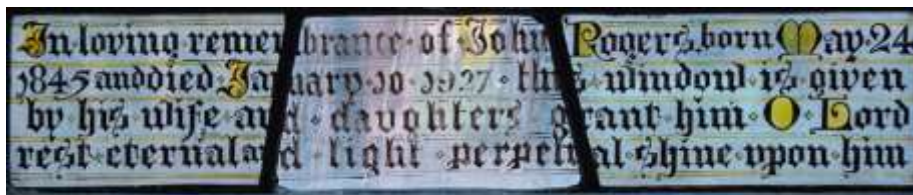 In loving remembrance · of · John Rogers, born May · 24
1845 and died January · 10 · 1927 · this · window · is · given
by his wife and · daughters · grant · him · O Lord
rest · eternal and · light · perpetual · shine · upon · him